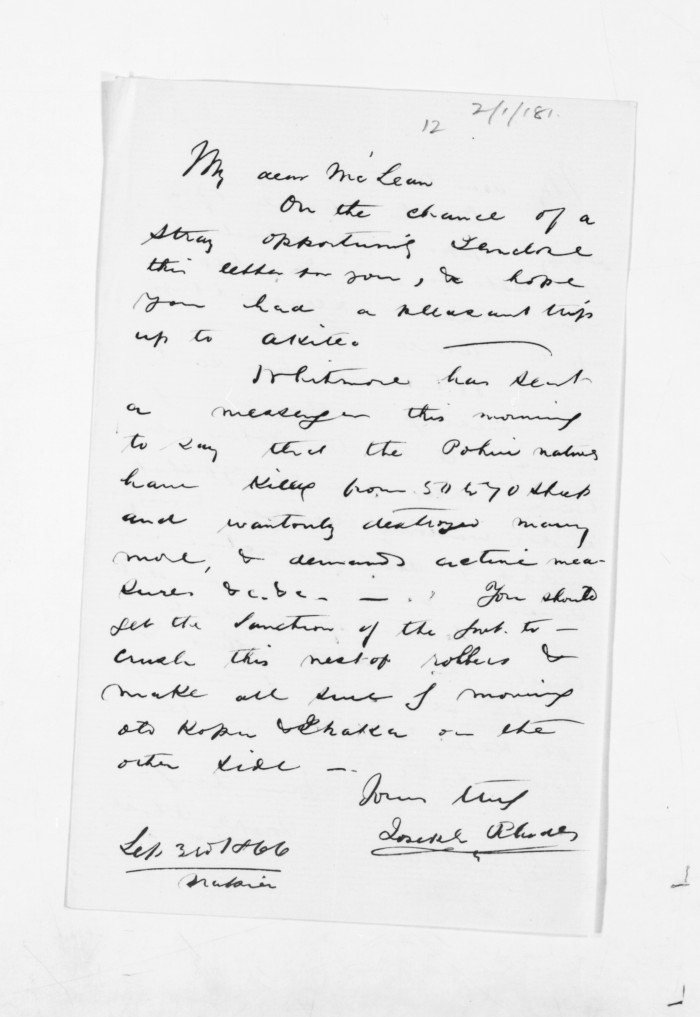 12 2/1/181.
My dear McLean
On the chance of a
stray opportunity I enclose
this letter for you, & hope
you had a pleasant trip
up to Akitio
Whitmore has sent
a messenger this morning
to say that the Pohui natives
have killed from 50 to 70 sheep
and wantonly destroyed many
more, & demands active mea-
sures &c. &c. — . You should
get the sanction of the Govt. to —
crush this nest of robbers &
make all sure of moving
on the
other side —
Yours truly
Joseph Rhodes
Sep. 3rd 1866
Napier